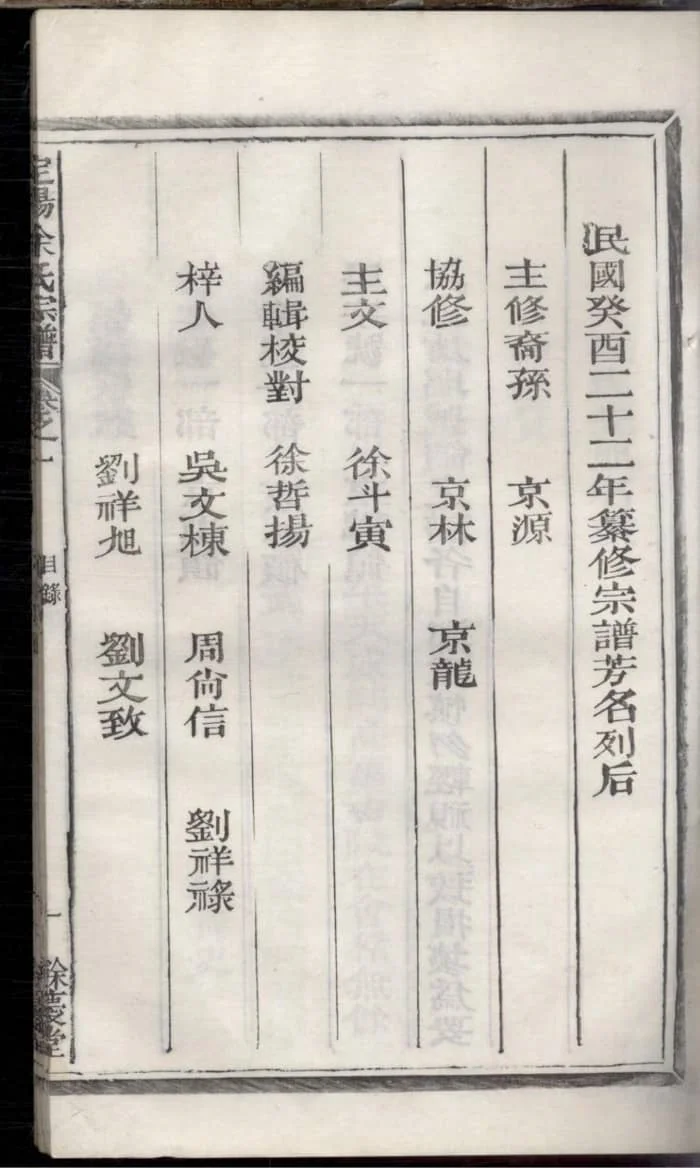 民國癸酉二十二年纂修宗譜芳名列后
主修裔孫 京源
協修 京林 京龍
主文 徐斗寅
編輯校對 徐哲揚
梓人 吳文棟 周尙信 劉祥祿
劉祥旭 劉文致
余氏宗譜 卷之一 目錄 一 餘慶堂